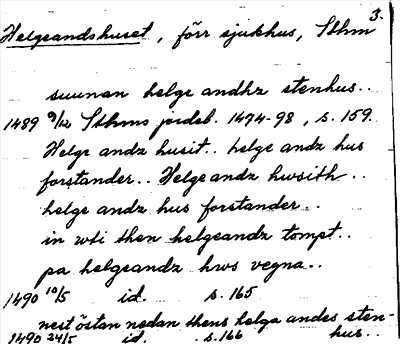 3.
Helgeandshuset, förr sjukhus, Sthm
sunnan helge andhz stenhus..
1489 9/12 Sthms jordeb. 1474-98, s. 159.
Helge andz husit.. helge andz hus
forstander.. Helge andz hwsith..
helge andz hus forstander..
in wti then helgeandz tompt..
pa helgeandz hws vegna..
1490 10/5 id. s. 165
nest östan nedan thens helga andes sten-
hus..
1490 24/5 id. s. 166